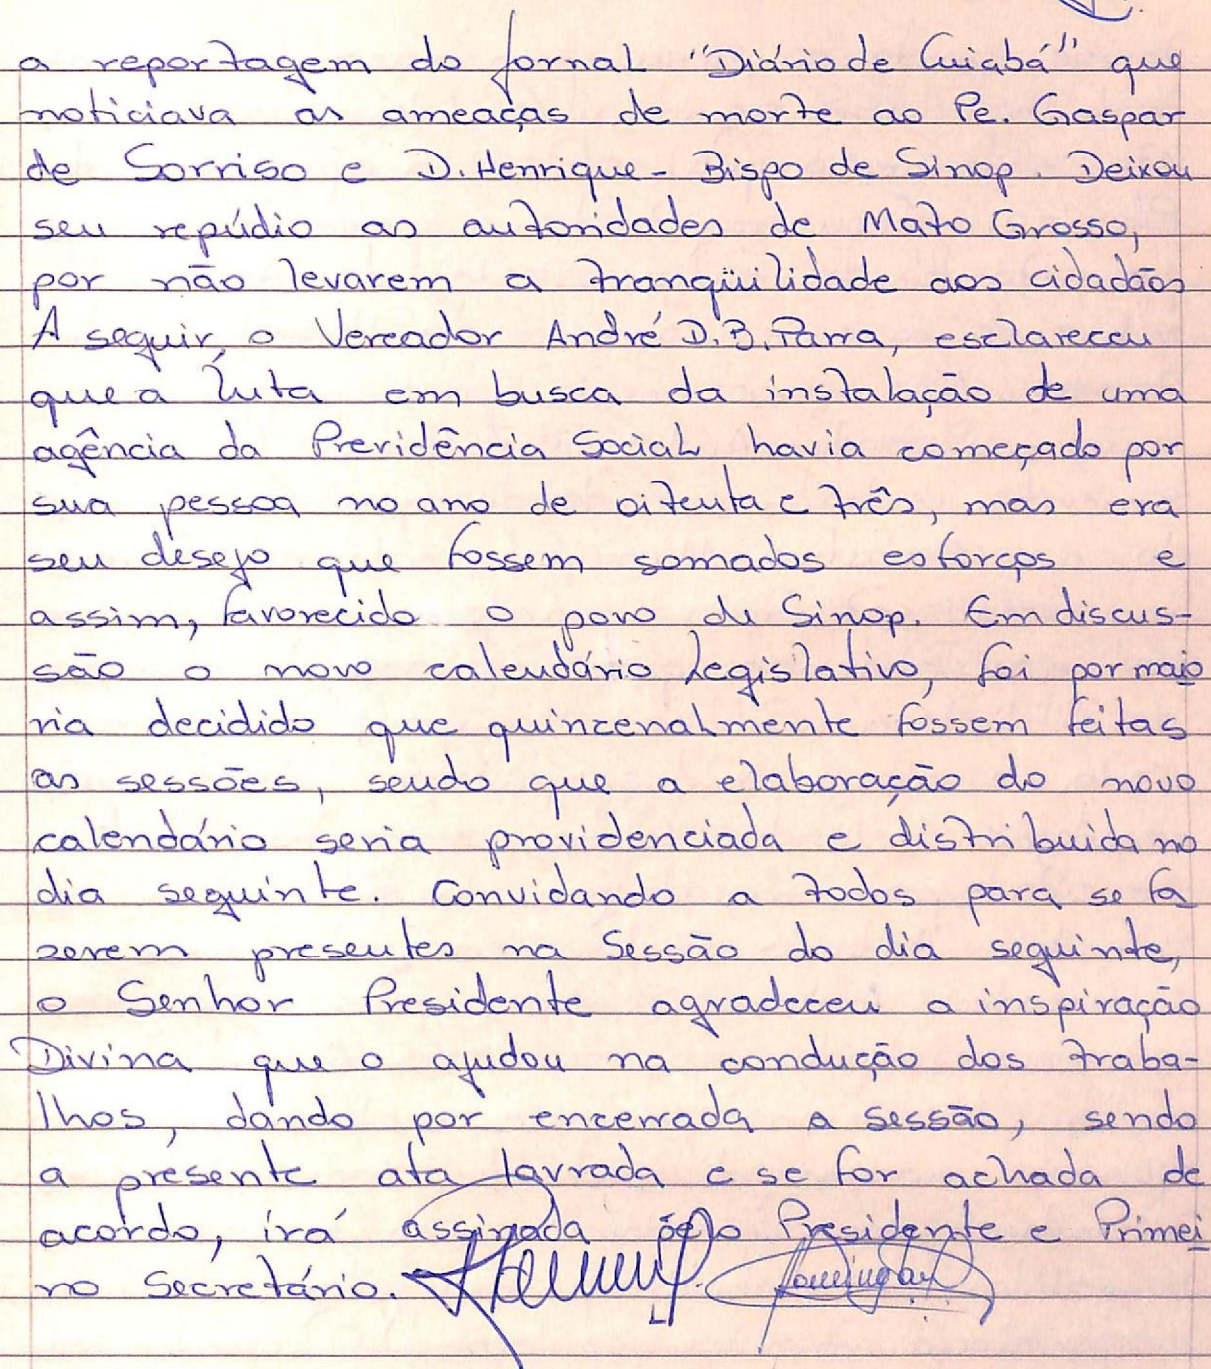 a reportagem do jornal "Diário de Cuiabá" que
noticiava as ameaças de morte ao Pe. Gaspar
de Sorriso e D. Henrique - Bispo de Sinop. Deixou
seu repúdio as autoridades de Mato Grosso,
por não levarem a tranqüilidade aos cidadãos
A seguir, o Vereador André D.B. Parra, esclareceu
que a luta em busca da instalação de uma
agência da Previdência Social havia começado por
sua pessoa no ano de oitenta e três, mas era
seu desejo que fossem somados esforços e
assim, favorecido o povo de Sinop. Em discus-
são o novo calendário Legislativo, foi por maio
ria decidido que quinzenalmente fossem feitas
as sessões, sendo que a elaboração do novo
calendário seria providenciada e distribuida no
dia seguinte. Convidando a todos para se fa
zerem presentes na Sessão do dia seguinte,
o Senhor Presidente agradeceu a inspiração
Divina que o ajudou na condução dos traba-
lhos, dando por encerrada a sessão, sendo
a presente ata lavrada e se for achada de
acordo, irá assinada pelo Presidente e Primei
ro Secretário.